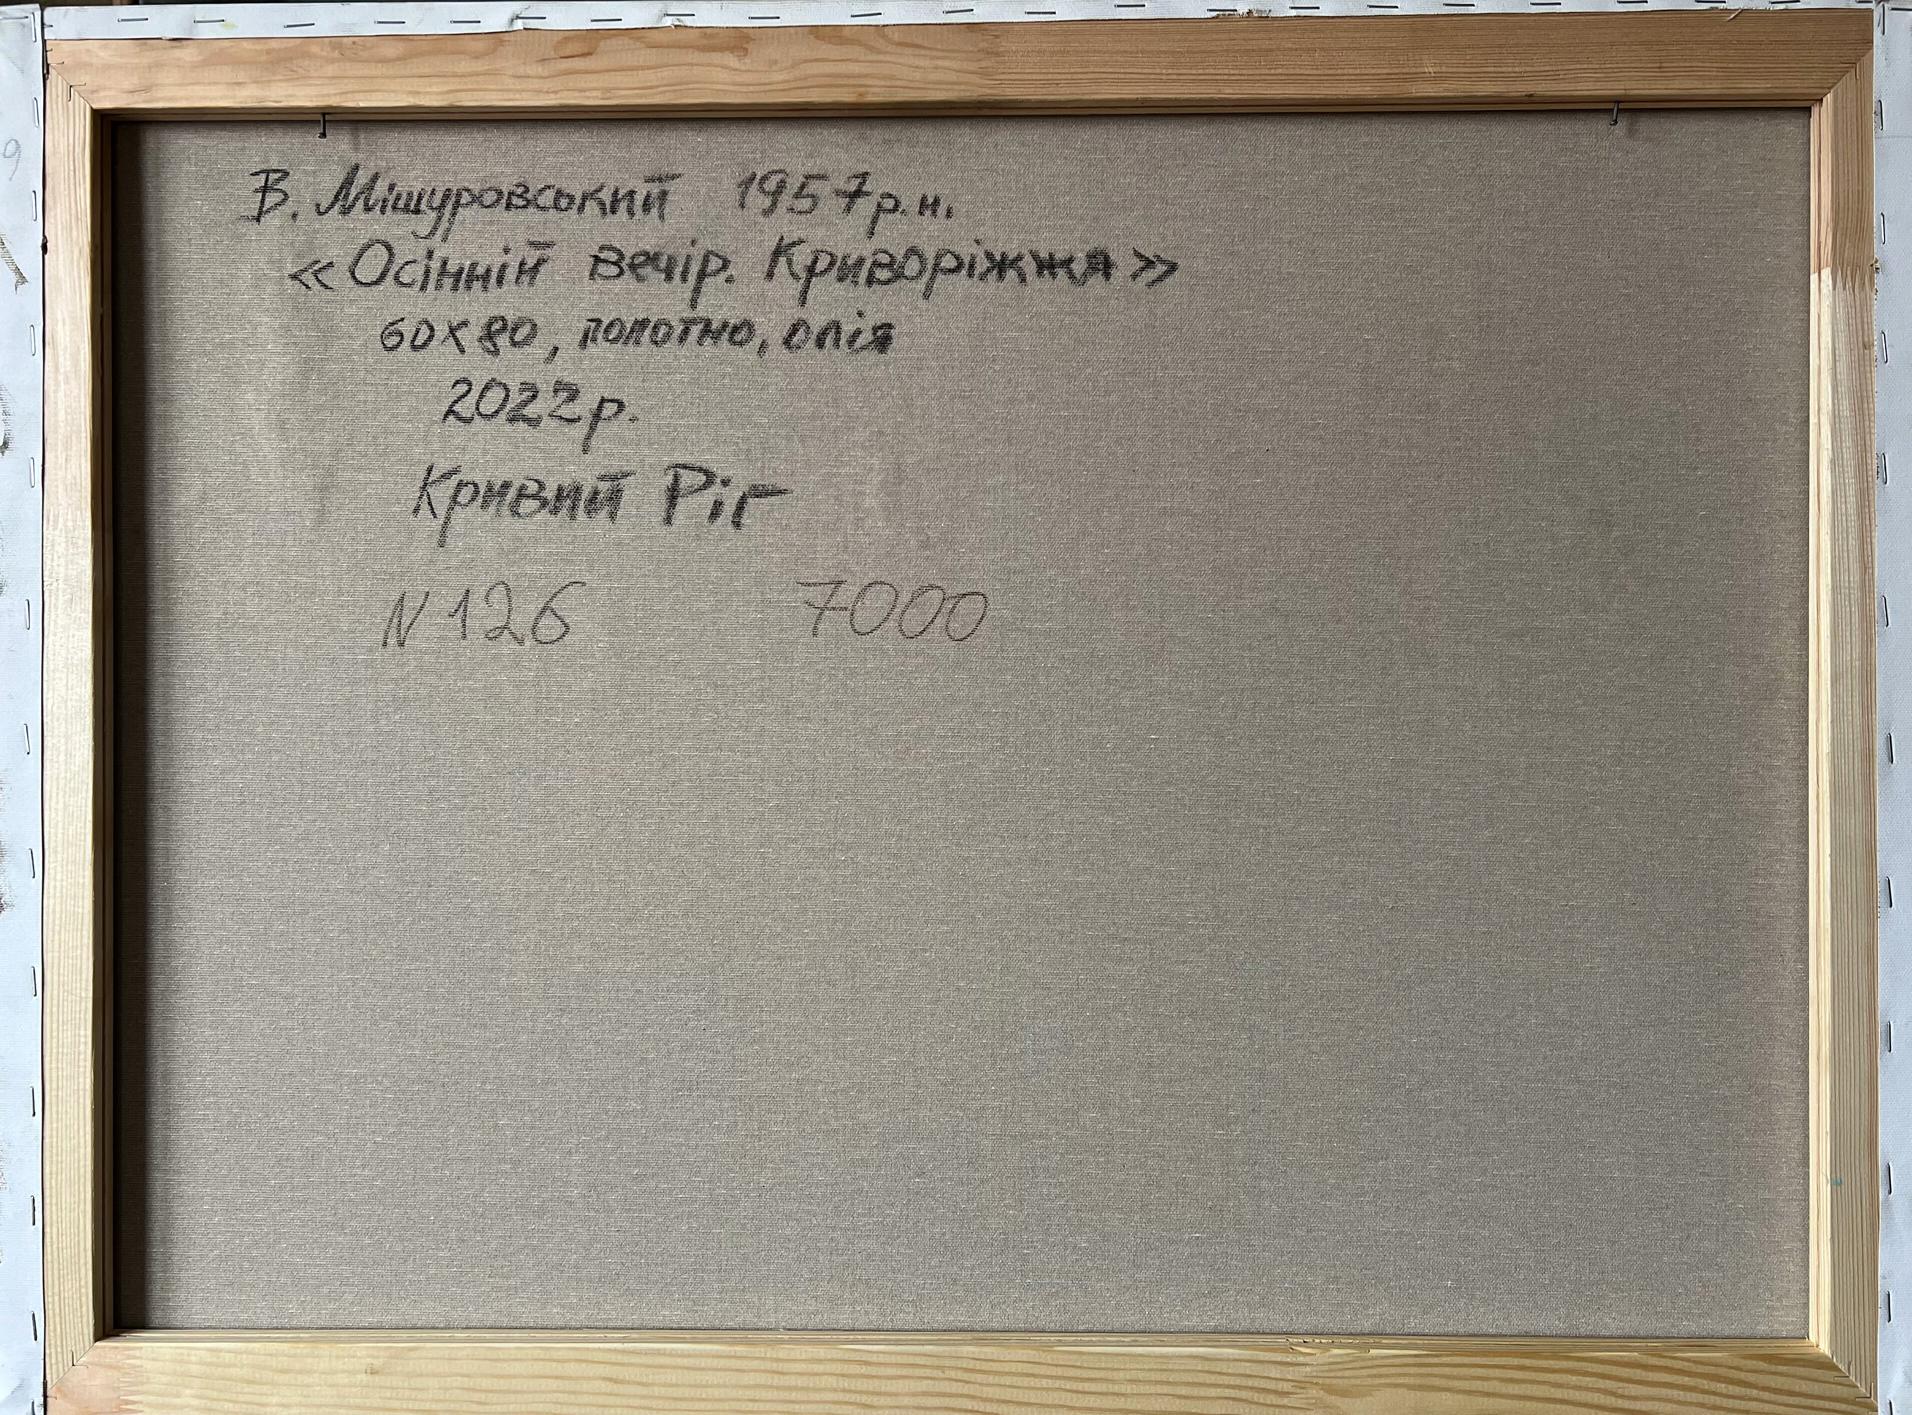 В. Мішуровський 1957 р.н.
«Осінній вечір. Криворіжжя»
60х80, полотно, олія
2022р.
Кривий Ріг
N 126 7000
9